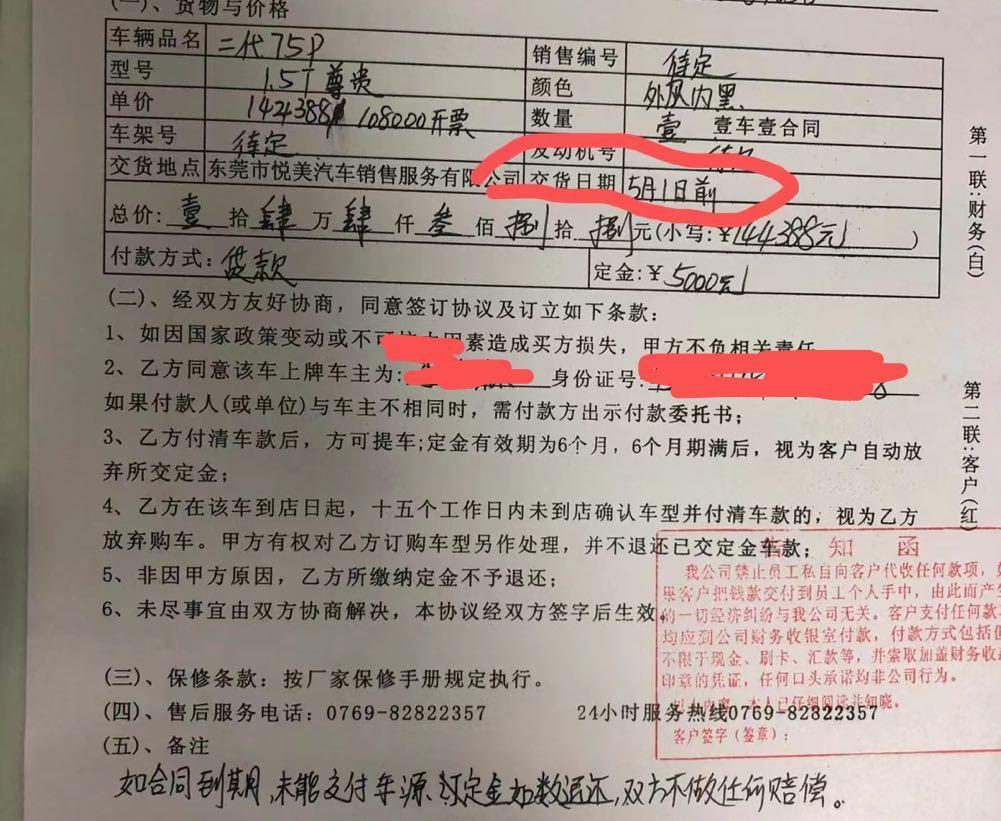 (一)、货物与价格
车辆品名 二代75P 销售编号 待定
型号 1.5T尊贵 颜色 外灰内黑
单价 144388 108000开票 数量 壹 壹车壹合同
车架号 待定 发动机号
交货地点 东莞市悦美汽车销售服务有限公司 交货日期 5月1日前
总价: 壹 拾 肆 万 肆 仟 叁 佰 捌 拾 捌 元(小写:¥144388元)
付款方式: 贷款 定金:¥ 5000元
(二)、经双方友好协商,同意签订协议及订立如下条款:
1、如因国家政策变动或不可 因素造成买方损失,甲方不负相关责任
2、乙方同意该车上牌车主为: 身份证号:
如果付款人(或单位)与车主不相同时,需付款方出示付款委托书;
3、乙方付清车款后,方可提车;定金有效期为6个月,6个月期满后,视为客户自动放
弃所交定金;
4、乙方在该车到店日起,十五个工作日内未到店确认车型并付清车款的,视为乙方
放弃购车。甲方有权对乙方订购车型另作处理,并不退还已交定金车款;
5、非因甲方原因,乙方所缴纳定金不予退还;
6、未尽事宜由双方协商解决,本协议经双方签字后生效。
(三)、保修条款:按厂家保修手册规定执行。
(四)、售后服务电话:0769-82822357 24小时服务热线0769-82822357
(五)、备注
如合同到期,未能交付车源,订定金如数退还,双方不做任何赔偿。
告知函
我公司禁止员工私自向客户代收任何款项,如
果客户把钱款交付到员工个人手中,由此而产生
的一切经济纠纷与我公司无关。客户支付任何款
均应到公司财务收银室付款,付款方式包括但
不限于现金、刷卡、汇款等,并索取加盖财务收
印章的凭证,任何口头承诺均非公司行为。
以上内容,本人已仔细阅读并知晓。
客户签字(签章):
第一联:财务(白)
第二联:客户(红)